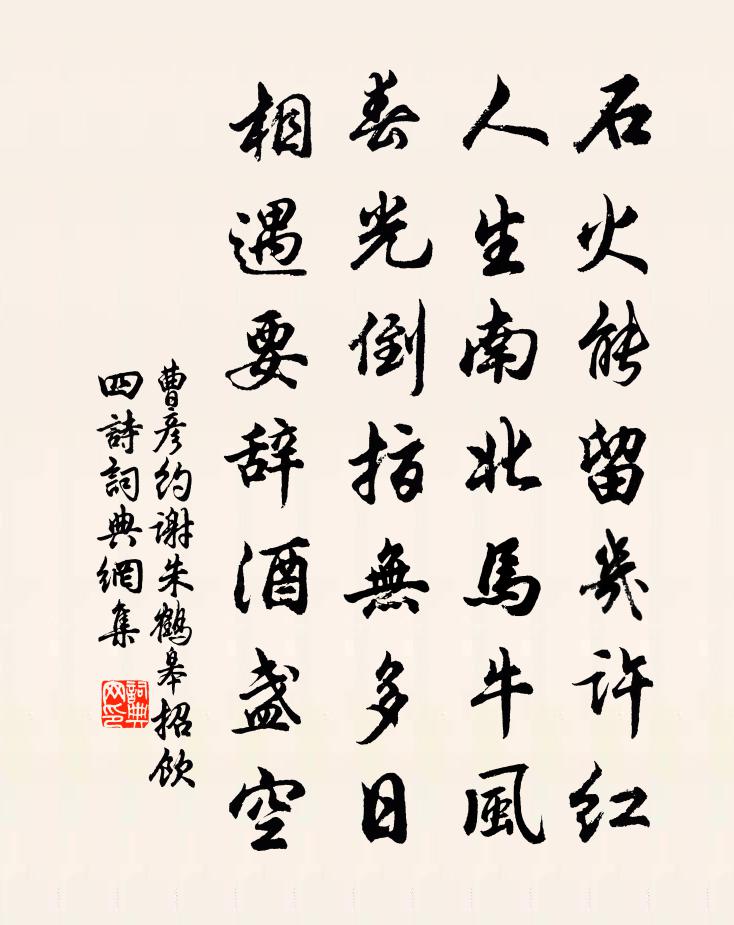 石火能留幾許紅
人生南北馬牛風
春光倒指無多日
相遇要辞酒盏空
曹彦约谢朱鶴皋招飲
四詩詞典網集
詞典
网印